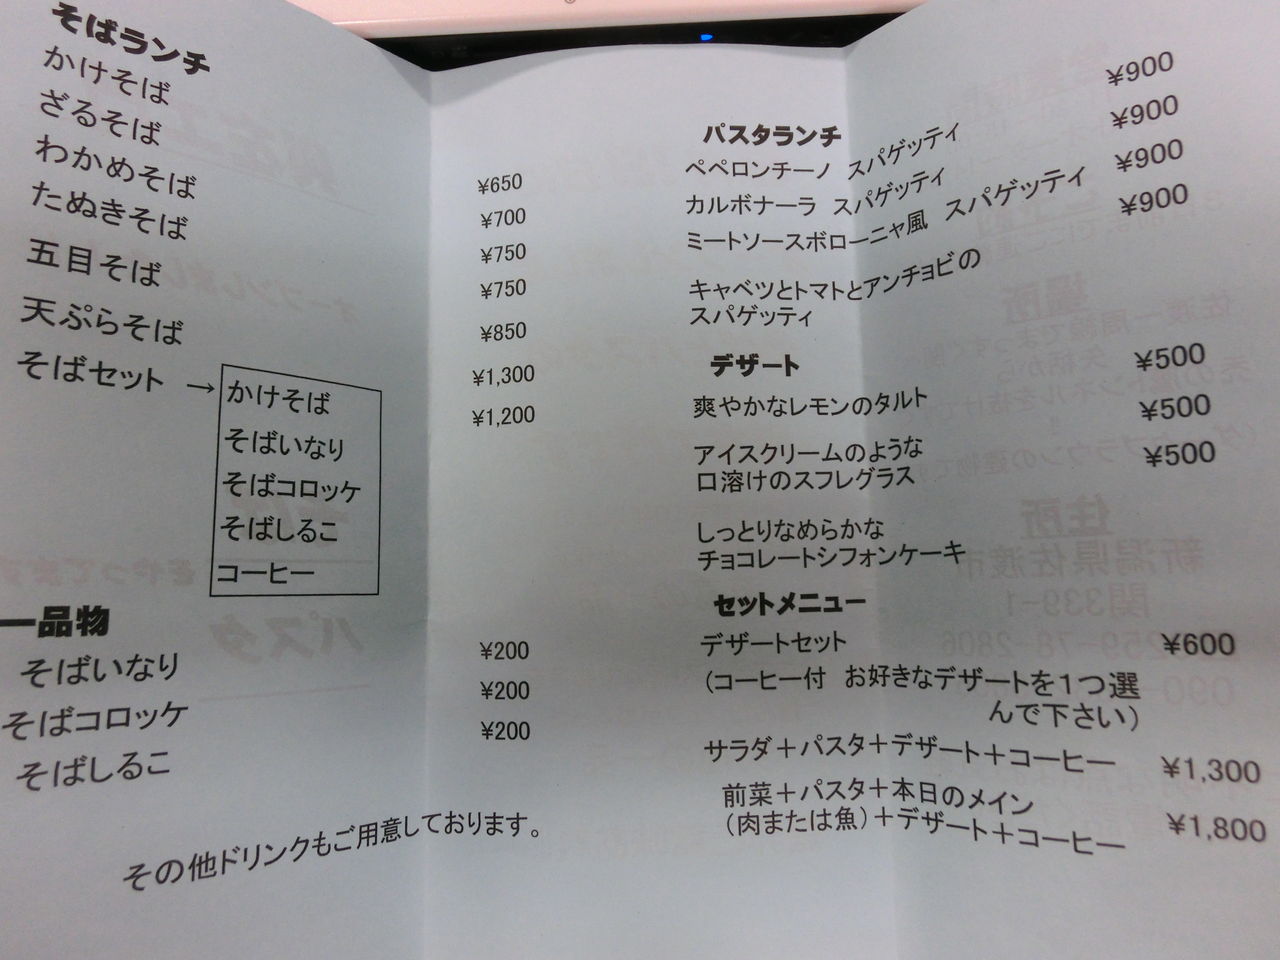 そばランチ
かけそば ¥650
ざるそば ¥700
わかめそば ¥750
たぬきそば ¥750
五目そば ¥850
天ぷらそば ¥1,300
そばセット → ¥1,200
かけそば
そばいなり
そばコロッケ
そばしるこ
コーヒー
一品物
そばいなり ¥200
そばコロッケ ¥200
そばしるこ ¥200
その他ドリンクもご用意しております。
パスタランチ
ペペロンチーノ スパゲッティ ¥900
カルボナーラ スパゲッティ ¥900
ミートソースボローニャ風 スパゲッティ ¥900
キャベツとトマトとアンチョビの ¥900
スパゲッティ
デザート
爽やかなレモンのタルト ¥500
アイスクリームのような ¥500
口溶けのスフレグラス
しっとりなめらかな ¥500
チョコレートシフォンケーキ
セットメニュー
デザートセット ¥600
(コーヒー付 お好きなデザートを1つ選
んで下さい)
サラダ+パスタ+デザート+コーヒー ¥1,300
前菜+パスタ+本日のメイン
(肉または魚)+デザート+コーヒー ¥1,800